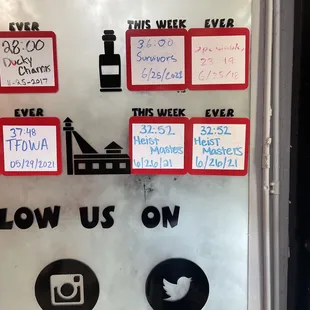 EVER
THIS WEEK
EVER
28:00
Ducky
Charms
11-25-2017
36:00
Survivors
6/25/2021
23:19
6/25/18
EVER
THIS WEEK
EVER
37:48
TFOWA
05/29/2021
32:52
Heist
Masters
6/26/21
32:52
Heist
Masters
6/26/21
LOW US ON